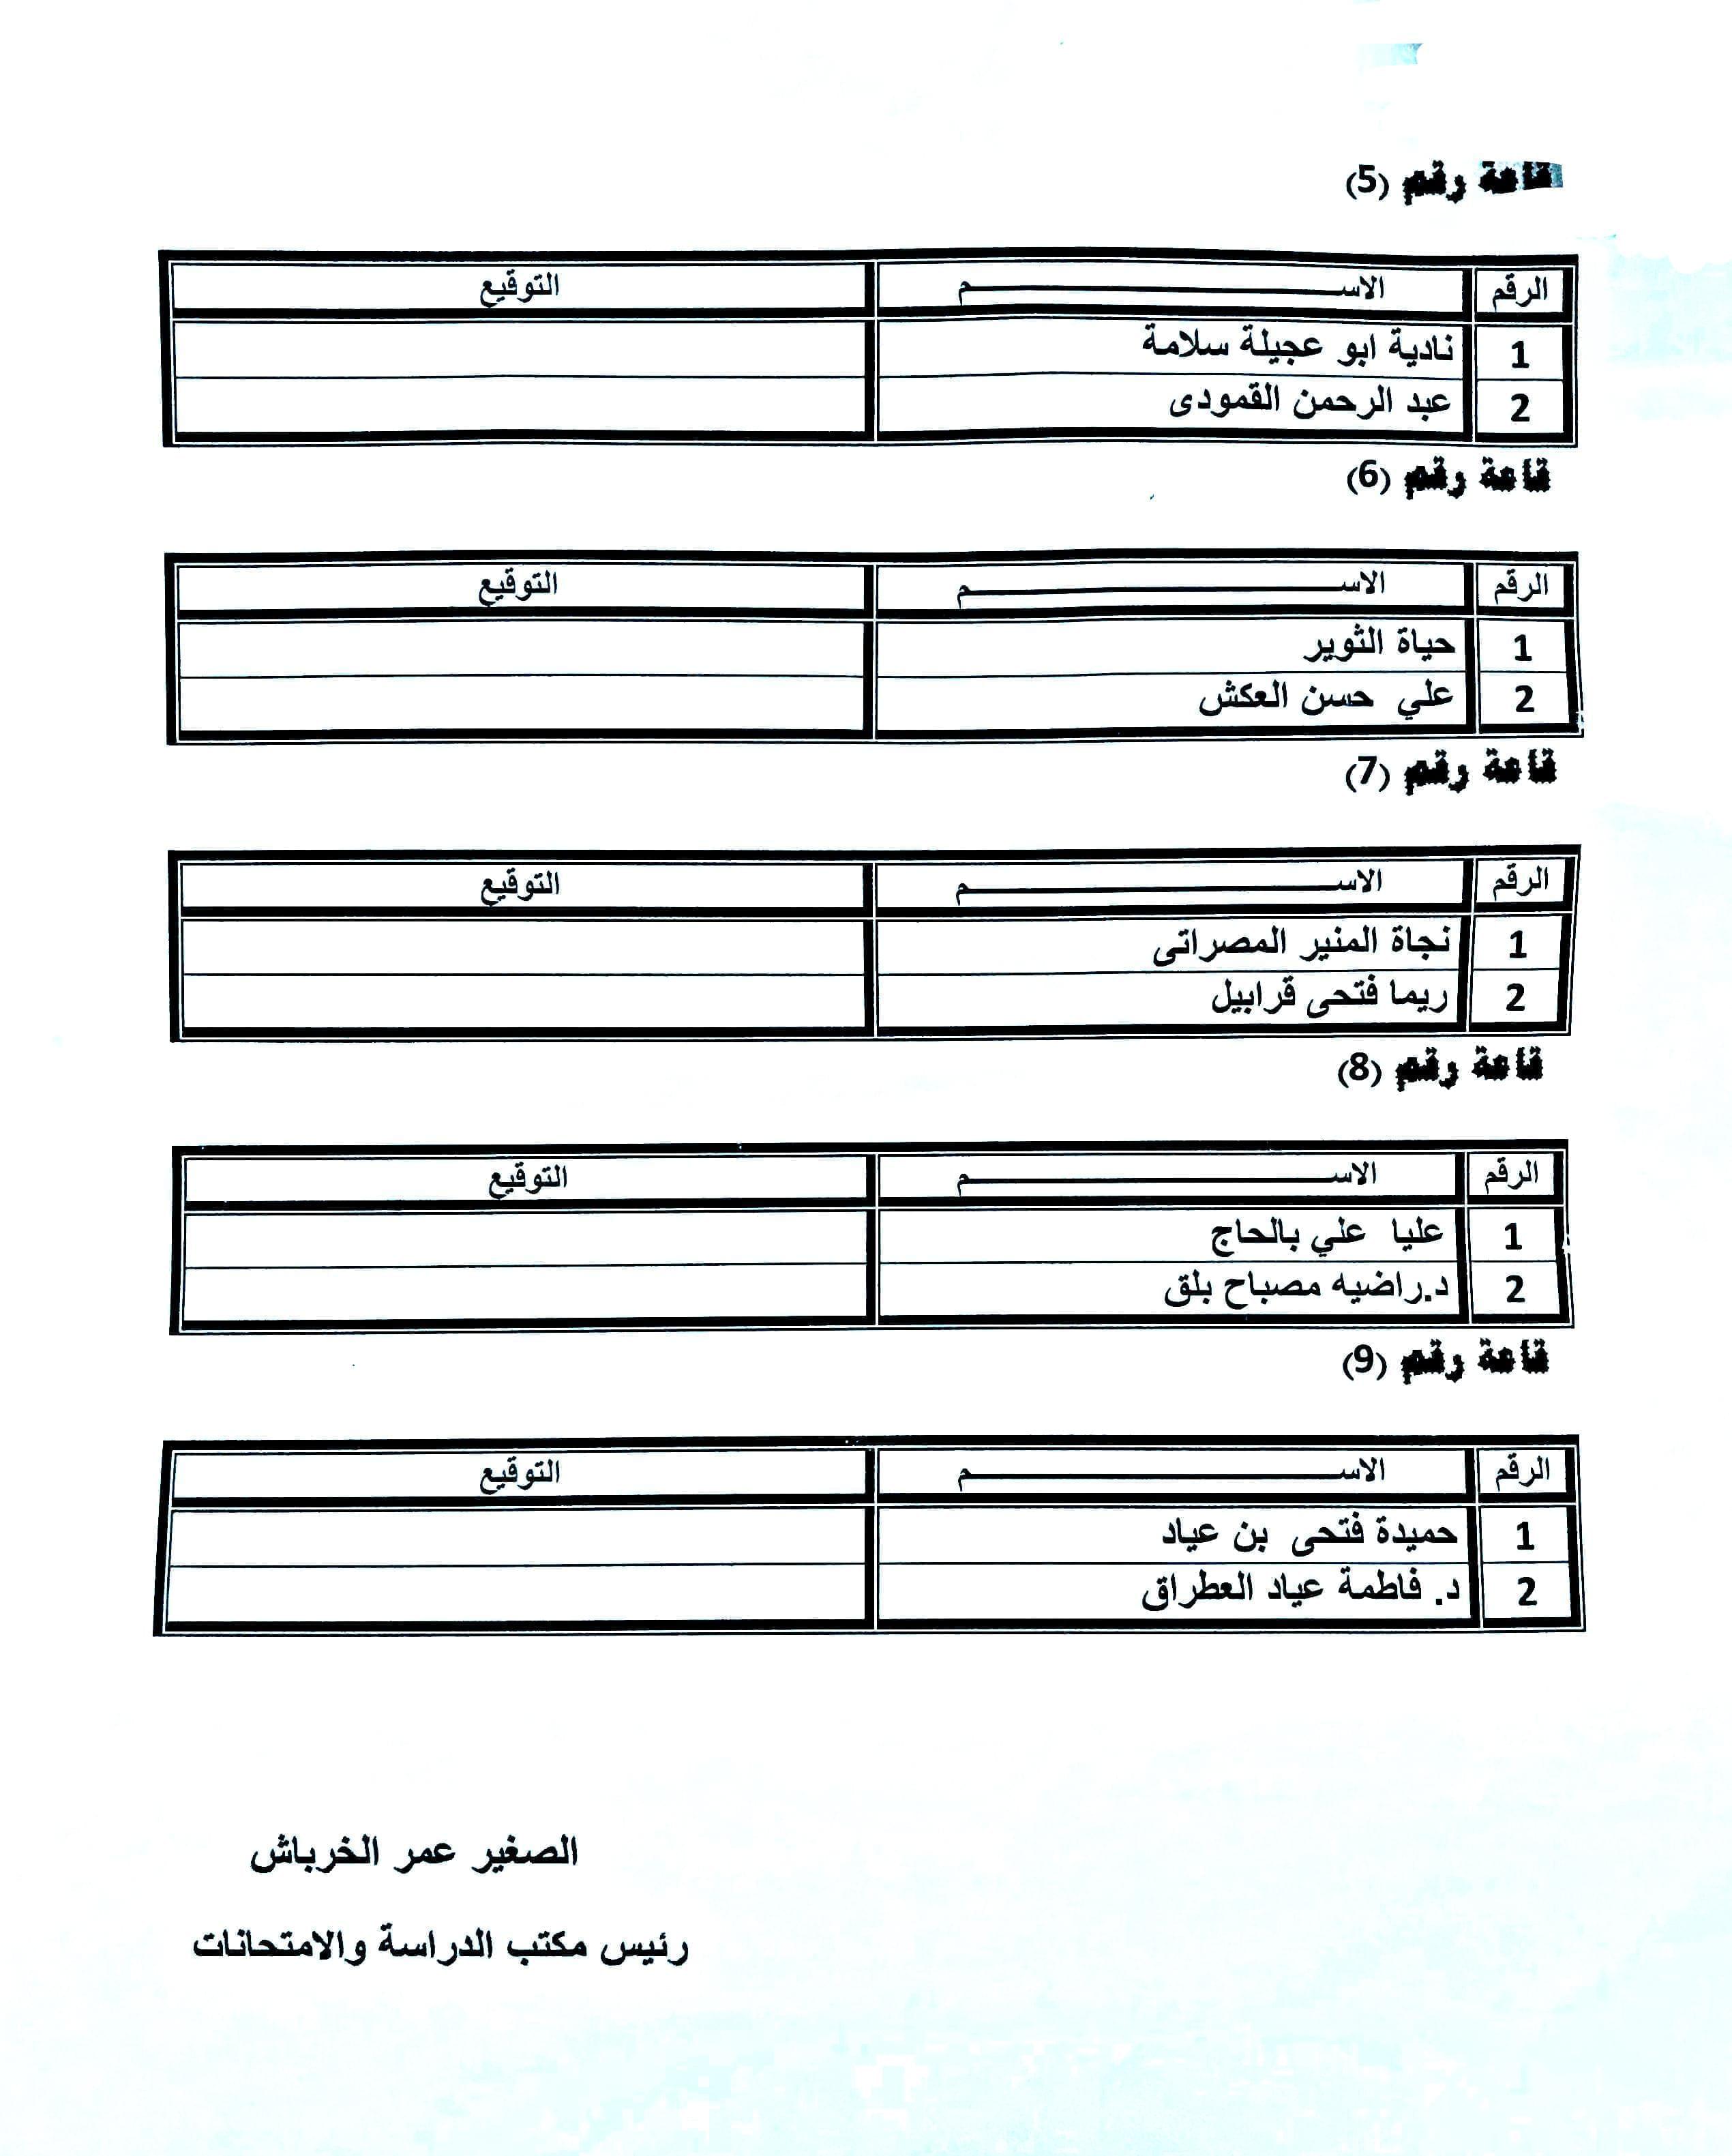 قاعة رقم (5)
الرقم الاســـــــــــــــــــــــــم التوقيع
1 نادية ابو عجيلة سلامة
2 عبد الرحمن القمودى
قاعة رقم (6)
الرقم الاســـــــــــــــــــــــــم التوقيع
1 حياة الثوير
2 علي حسن العكش
قاعة رقم (7)
الرقم الاســـــــــــــــــــــــــم التوقيع
1 نجاة المنير المصراتى
2 ريما فتحى قرابيل
قاعة رقم (8)
الرقم الاســـــــــــــــــــــــــم التوقيع
1 عليا علي بالحاج
2 د.راضيه مصباح بلق
قاعة رقم (9)
الرقم الاســـــــــــــــــــــــــم التوقيع
1 حميدة فتحى بن عياد
2 د. فاطمة عياد العطراق
الصغير عمر الخرباش
رئيس مكتب الدراسة والامتحانات